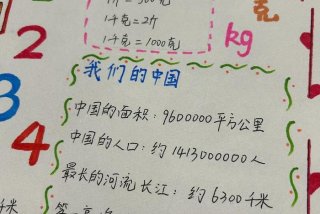 1斤=500克
1千克=2斤
1千克=1000克
克
kg
2
3
4
我们的中国
中国的面积:9600000平方公里
中国的人口:约1413000000人
最长的河流 长江:约6300千米
千米